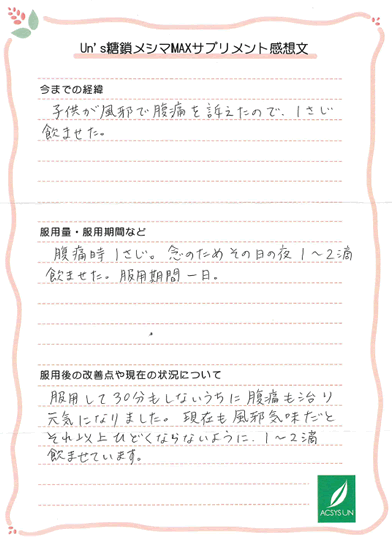 Un's糖鎖メシマMAXサプリメント感想文
今までの経緯
子供が風邪で腹痛を訴えたので、1さじ
飲ませた。
服用量・服用期間など
腹痛時1さじ。念のためその日の夜1〜2滴
飲ませた。服用期間一日。
服用後の改善点や現在の状況について
服用して30分もしないうちに腹痛も治り
元気になりました。現在も風邪気味だと
それ以上ひどくならないように、1〜2滴
飲ませています。
ACSYS UN